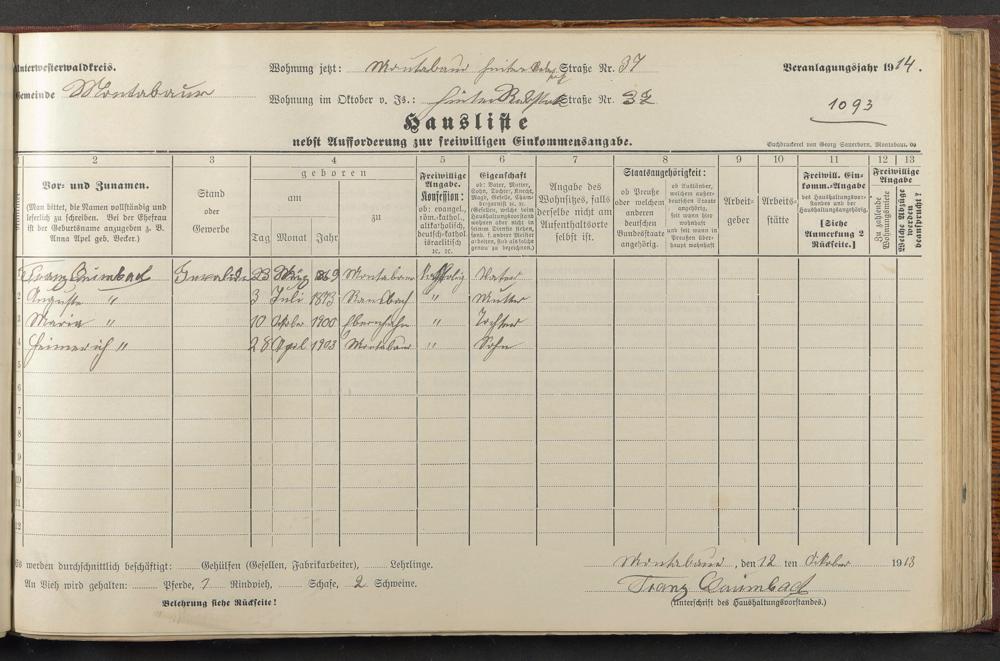 Unterwesterwaldkreis.
Wohnung jetzt: Montabaur hinter Straße Nr. 37
Veranlagungsjahr 1914.
Gemeinde Montabaur
Wohnung im Oktober v. Js.: hinter Straße Nr.
1093
Hausliste
nebst Aufforderung zur freiwilligen Einkommensangabe.
Buchdruckerei von Georg Sauerborn, Montabaur.
2 3 4 5 6 7 8 9 10 11 12 13
Vor- und Zunamen.
(Man bittet, die Namen vollständig und
leserlich zu schreiben. Bei der Ehefrau
ist der Geburtsname anzugeben z. B.
Anna Apel geb. Becker.)
Stand
oder
Gewerbe
geboren
am
zu
Tag Monat Jahr
Freiwillige
Angabe.
Konfession:
ob: evangel.,
röm.-kathol.,
altkatholisch,
deutsch-kathol.
israelitisch
2c. 2c.
Eigenschaft
ob: Vater, Mutter,
Sohn, Tochter, Knecht,
Magd, Geselle,
Angabe des
Wohnsitzes, falls
derselbe nicht am
Aufenthaltsorte
selbst ist.
Staatsangehörigkeit:
ob Preuße
oder welchem
anderen
deutschen
Bundesstaate
angehörig.
ob Ausländer,
welchem außer-
deutschen Staate
angehörig,
seit wann hier
wohnhaft
und seit wann in
Preußen über-
haupt wohnhaft
Arbeit-
geber
Arbeits-
stätte
Freiwill. Ein-
komm.-Angabe
des Haushaltungsvor-
standes und der
Haushaltungsangehörig.
[Siehe
Anmerkung 2
Rückseite.]
Freiwillige
Angabe
Zu zahlende
Wohnungsmiete
Welche Abzüge
werden
beansprucht?
Franz Baumbach Invalide 23 1869 Montabaur Vater
2 Auguste " 3 Juli 1873 Ransbach " Mutter
3 Maria " 10 Oktober 1900 Ebernhahn " Tochter
4 Heinerich " 28 April 1903 Montabaur " Sohn
5
6
7
8
9
10
11
12
Es werden durchschnittlich beschäftigt: Gehülfen (Gesellen, Fabrikarbeiter), Lehrlinge.
Montabaur, den 12 ten Oktober 1913
An Vieh wird gehalten: Pferde, 1 Rindvieh, Schafe, 2 Schweine.
Franz Baumbach
Belehrung siehe Rückseite!
(Unterschrift des Haushaltungsvorstandes.)